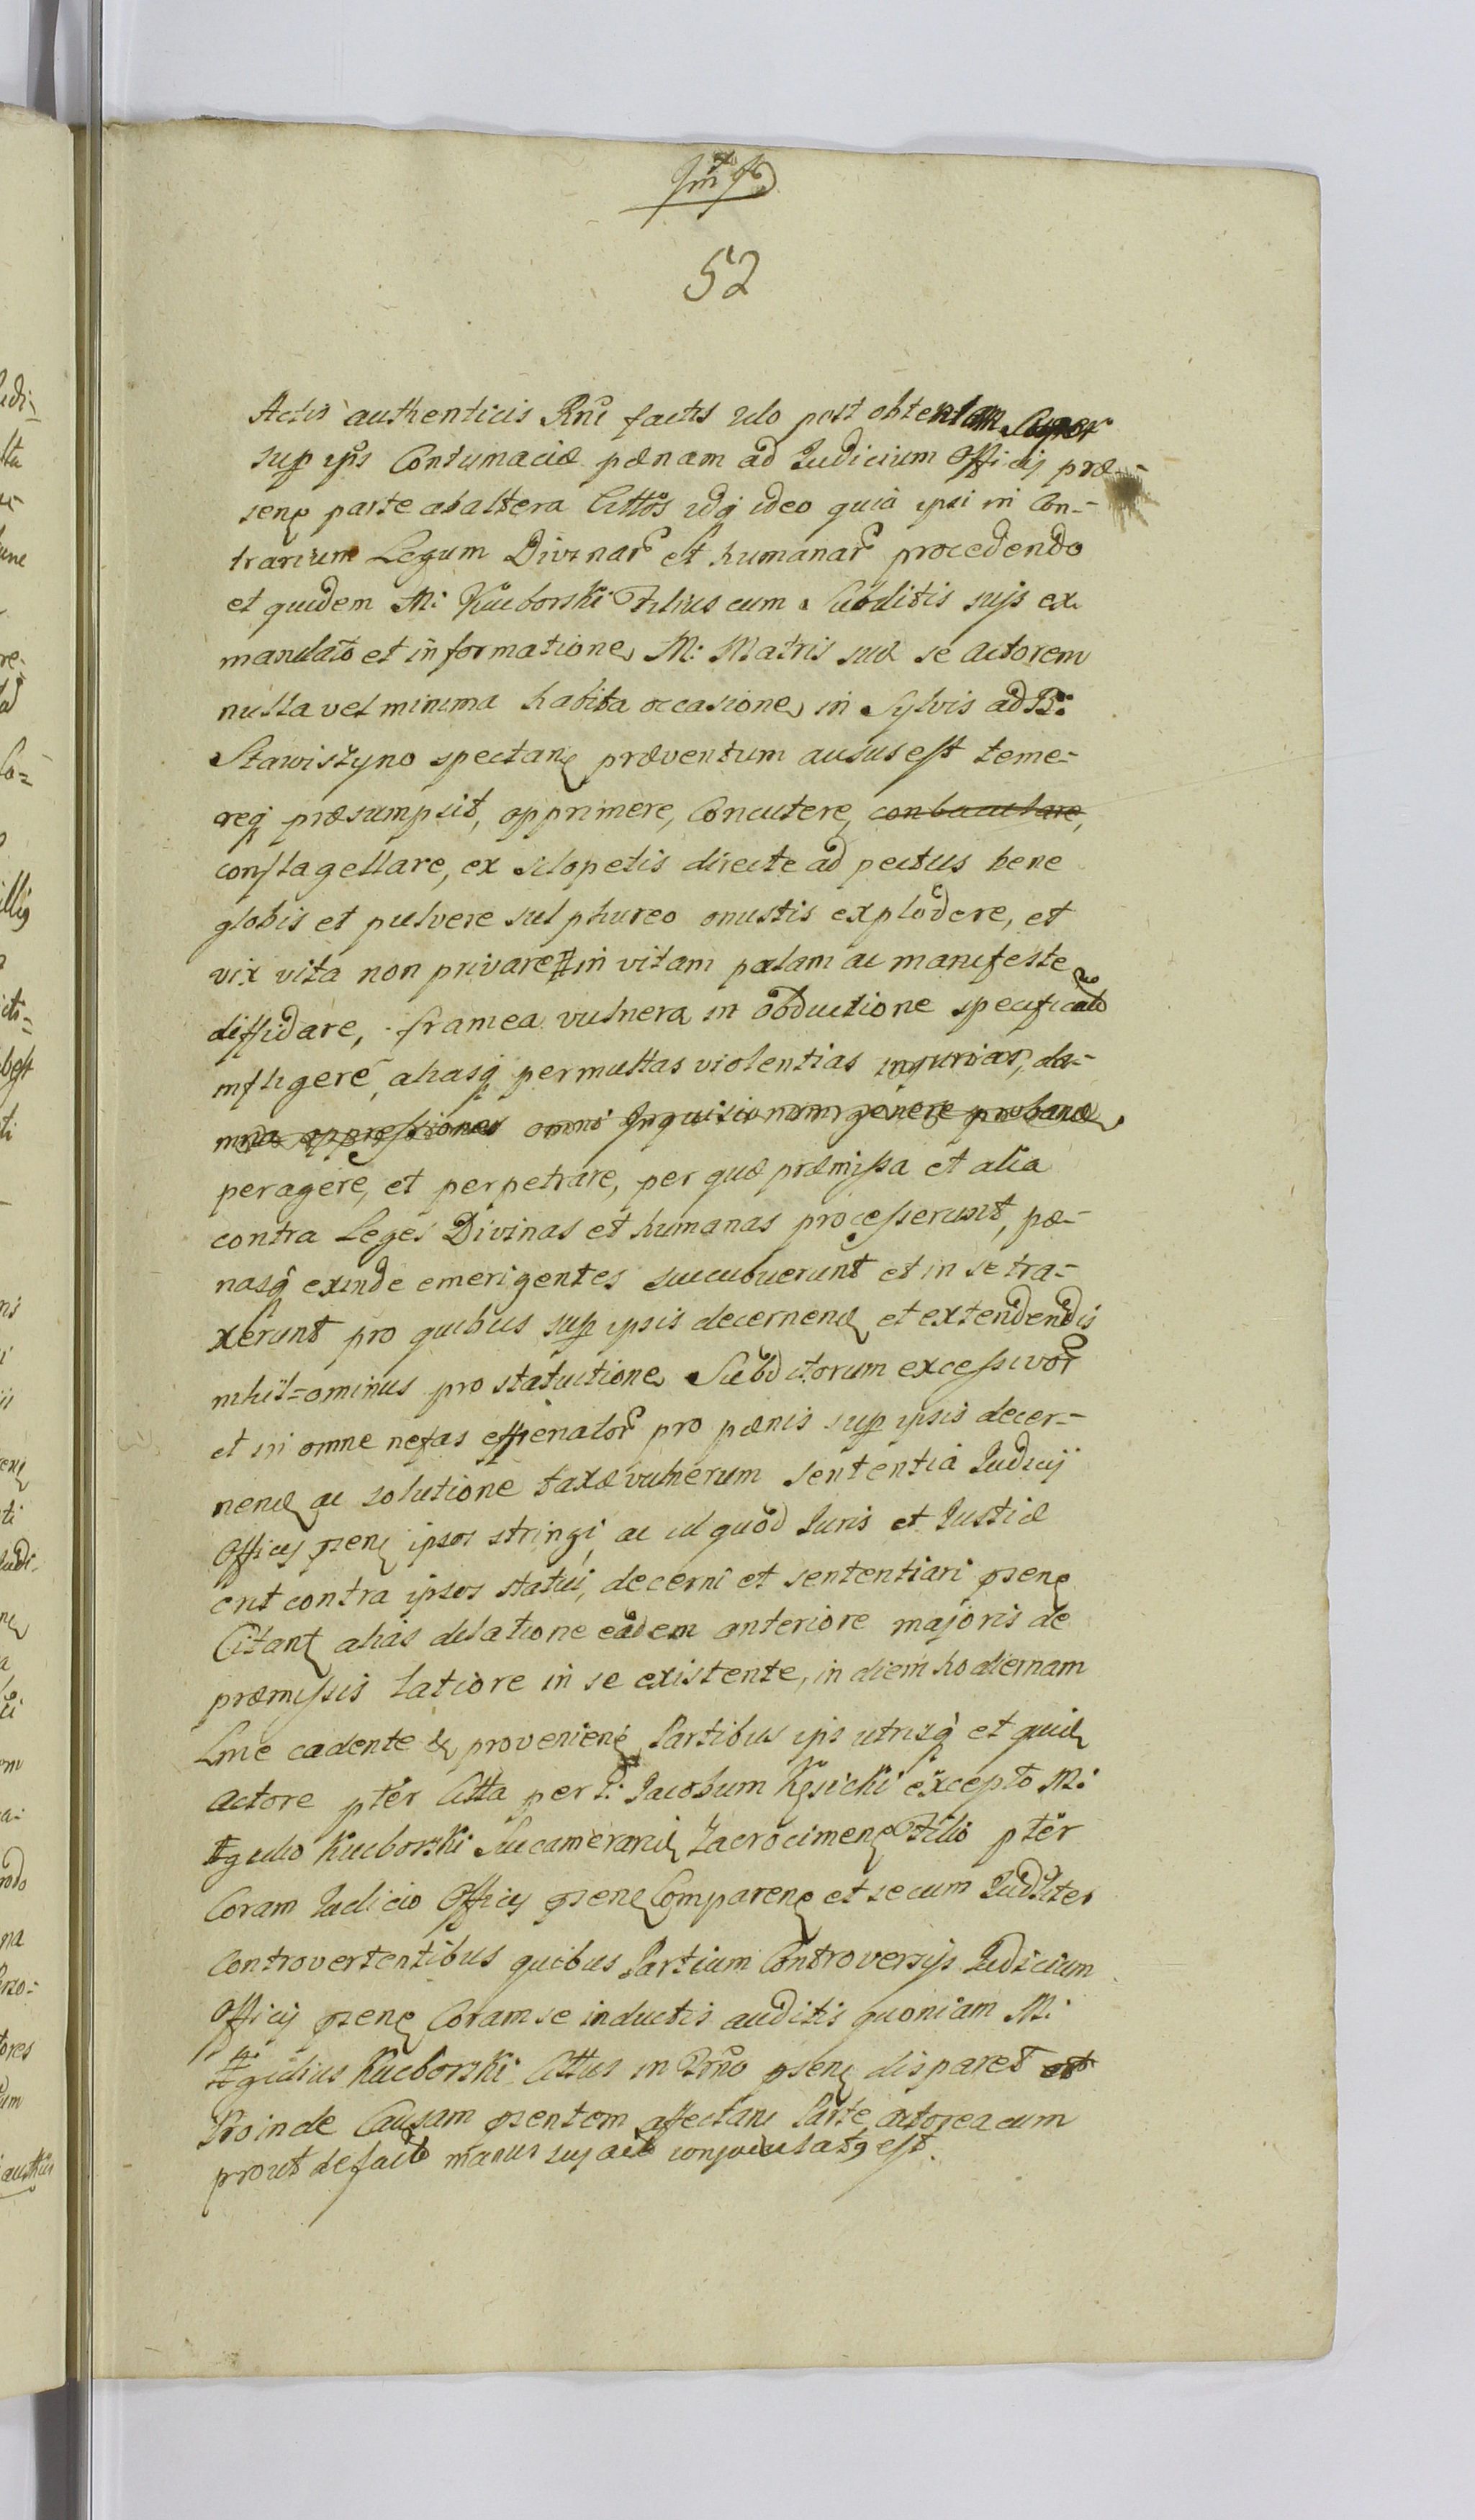 52
Actis authenticis Rne factis relo post obtentam
sup ips Contumaciæ pænam ad Iudicium Officij præ-
senę parte ab altera Cittos idq ideo quia ipsi in Con-
trarium Legum Divinar et humanar procedendo
et quidem M: Kucborski Filius cum Subditis suis ex
mandato et informatione M: Matris suæ se actorem
nulla vel minima habita occasione in Sylvis ad B:
Stawiszyno spectanę præventum ausus est teme-
req præsumpsit, opprimere, Concutere, conbaculare,
conflagellare, ex sclopetis directe ad pectus bene
globis et pulvere sulphureo onustis explodere, et
vix vita non privare in vitam palam ac manifeste
diffidare, framea vulnera in obductione specificata
infligere, aliasq permultas violentias injurias, da-
mna oppressiones omni Inquisitionum genere probandæ
peragere, et perpetrare, per quæ præmissa et alia
contra Leges Divinas et humanas processerunt, pæ-
nasq exinde emerigentes succubuerunt et in se tra-
xerunt pro quibus sup ipsis decernenę et extendendis
nihil=ominus pro statuitione Subditorum excessivor
et in omne nefas effrenator pro pænis sup ipsis decer-
nenę ac solutione taxæ vulnerum sententia Iudicij
Officij psenę ipsos stringi, ac id quod Iuris et Iustiæ
erit contra ipsos statui, decerni et sententiari psenę
Citanę alias delatione eadem anteriore majoris de
præmissis latiore in se existente, in diem hodiernam
Lme cadente et provenienę Partibus ips utrisq et quidę
Actore pter Citta per P: Iacobum Kęsicki excepto M:
Egidio Kucborski Succamerarię Zacrocimenę Filio pter
Coram Iudicio Officij psenę Comparenę et secum Iudliter
Controvertentibus quibus Partium Controversys Iudicium
Officij psenę Coram se inductis auditis quoniam M:
Egidius Kucborski Cittus in Tmno psenę disparet et
Proinde Causam psentem affectanę Parte actorea cum
prout de facto manus suj act est.